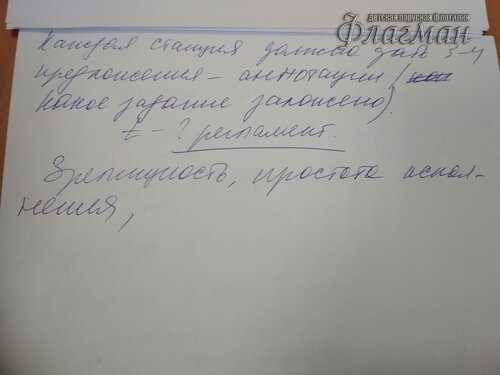 детская парусная флотилия
Флагман
Каждая станция должна дать 3-4
предложения - аннотации (
какое задание заложено).
t - ? регламент.
Зрелищность, простота испол-
нения,